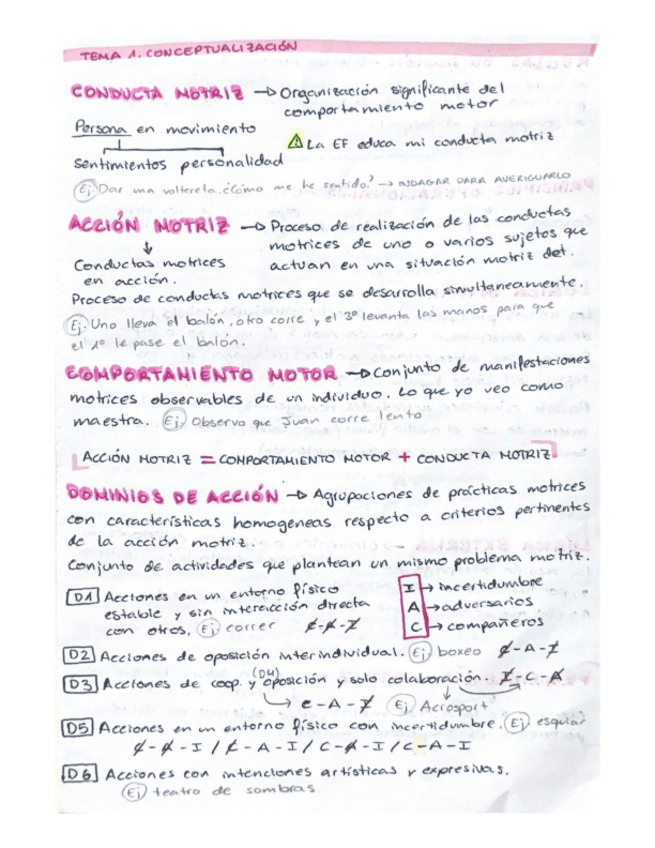 TEMA 1. CONCEPTUALIZACIÓN
CONDUCTA MOTRIZ → Organización significante del
comportamiento motor
Persona en movimiento
⚠ La EF educa mi conducta motriz
sentimientos personalidad
Ej Dar una voltereta ¿Cómo me he sentido? → INDAGAR PARA AVERIGUARLO
ACCIÓN MOTRIZ → Proceso de realización de las conductas
motrices de uno o varios sujetos que
↓
Conductas motrices
actuan en una situación motriz det.
en acción.
Proceso de conductas motrices que se desarrolla simultaneamente.
Ej. Uno lleva el balón, otro corre y el 3º levanta las manos para que
el 1º le pase el balón.
COMPORTAMIENTO MOTOR → Conjunto de manifestaciones
motrices observables de un individuo. Lo que yo veo como
maestra. Ej Observo que Juan corre lento
ACCIÓN MOTRIZ = COMPORTAMIENTO MOTOR + CONDUCTA MOTRIZ
DOMINIOS DE ACCIÓN → Agrupaciones de prácticas motrices
con características homogeneas respecto a criterios pertinentes
de la acción motriz.
Conjunto de actividades que plantean un mismo problema motriz.
D1 Acciones en un entorno físico
estable y sin interacción directa
con otros. Ej correr C-A-I
I → incertidumbre
A → adversarios
C → compañeros
D2 Acciones de oposición interindividual. Ej boxeo C-A-I
D3 Acciones de coop. y (D4) oposición y solo colaboración. I-C-A
↳ C-A-I Ej Acrosport
D5 Acciones en un entorno físico con incertidumbre. Ej esquiar
C-A-I / C-A-I / C-A-I / C-A-I
D6 Acciones con intenciones artísticas y expresivas.
Ej teatro de sombras.